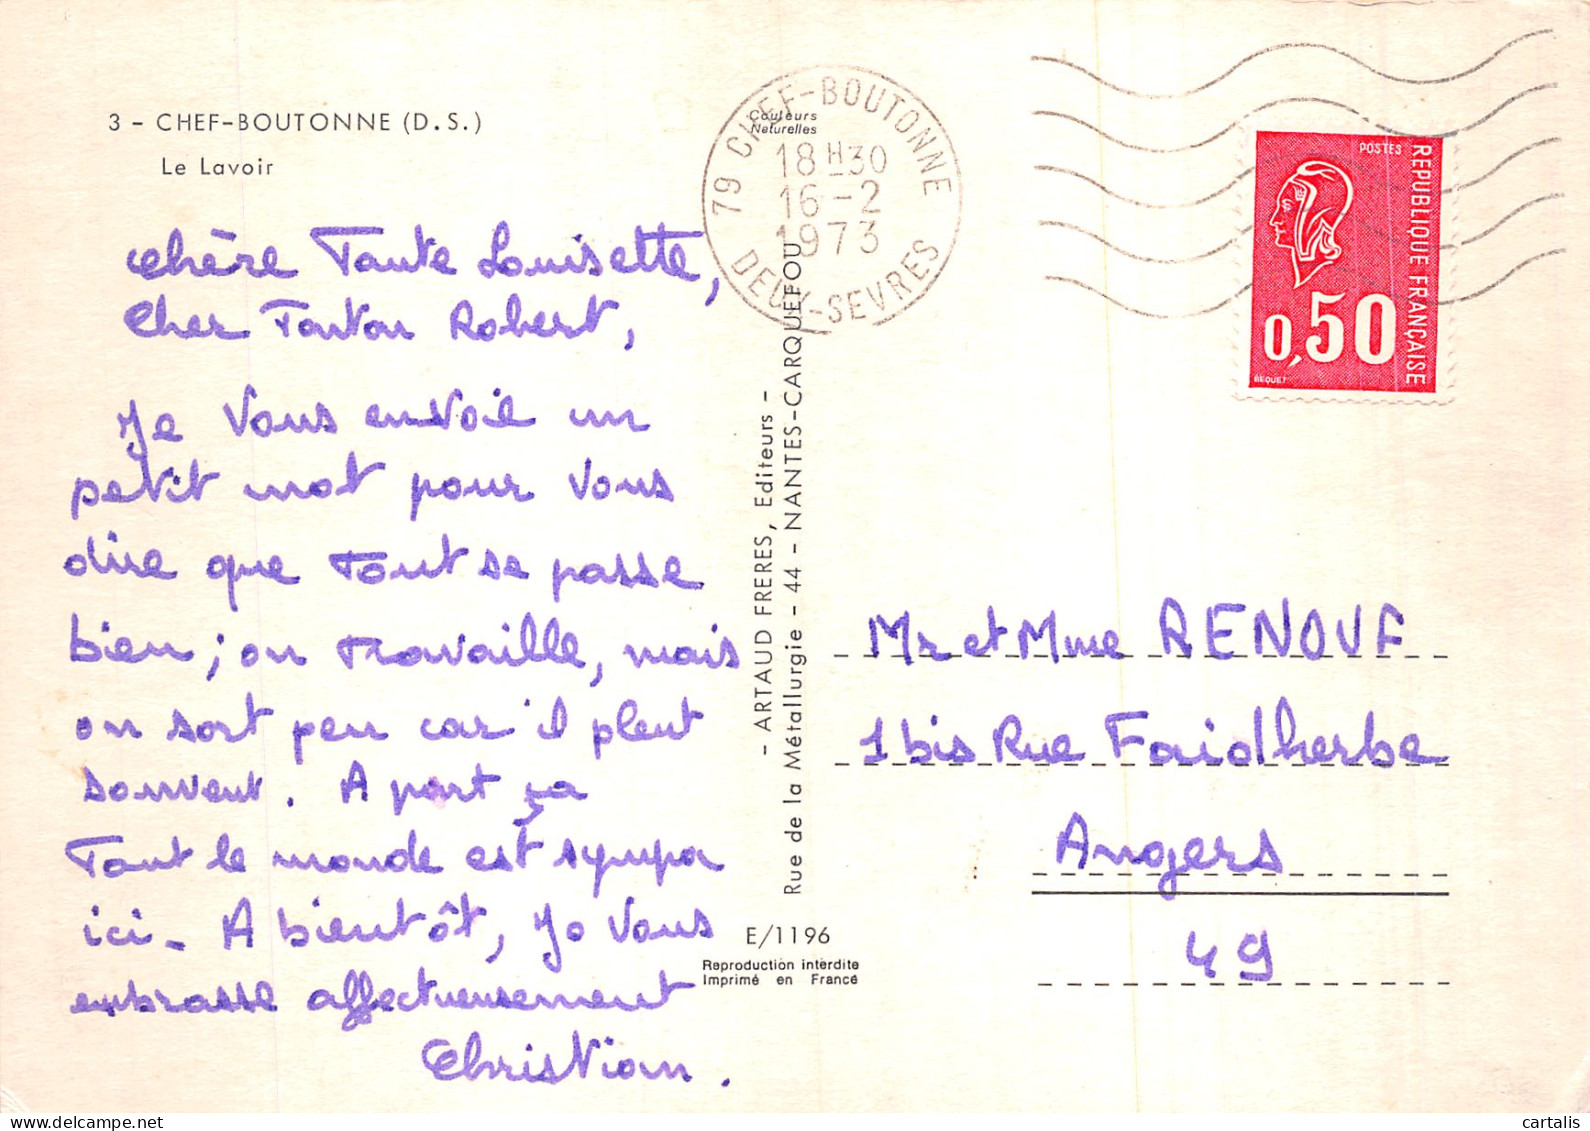 3 - CHEF-BOUTONNE (D.S.)
Le Lavoir
Couleurs
Naturelles
79 CHEF-BOUTONNE
18H30
16-2
1973
DEUX-SEVRES
POSTES
REPUBLIQUE FRANÇAISE
0,50
BEQUET
Chère Tante Louisette,
Cher Tonton Robert,
Je vous envoie un
petit mot pour vous
dire que tout se passe
bien; on travaille, mais
on sort peu car il pleut
souvent. A part ça
Tout le monde est sympa
ici. A bientôt, Je vous
embrasse affectueusement
Christian.
- ARTAUD FRERES, Editeurs -
Rue de la Métallurgie - 44 - NANTES-CARQUEFOU
E/1196
Reproduction interdite
Imprimé en France
Mr et Mme RENOUF
1 bis Rue Faidherbe
Angers
49
cartalis